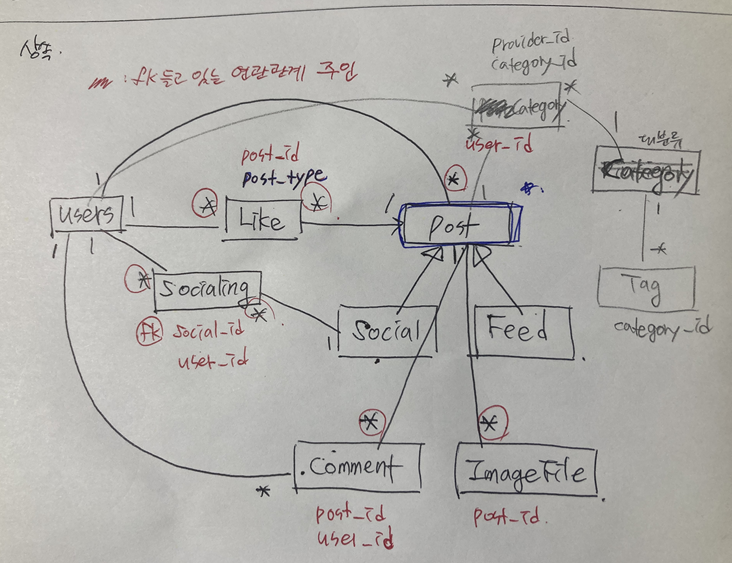 상속.
: fk 들고 있는 연관관계 주인
Provider_id
category_id
*
*
Category
*
user_id
1
대분류
Category
1
*
Tag
category_id
post_id
post_type
1
users
1
*
Like
*
1
*
1
*.
Post
1
1
1
*
Socialing
*
fk
social_id
user_id
1
Social
Feed
*
*
*
Comment
ImageFile
post_id
user_id
post_id.